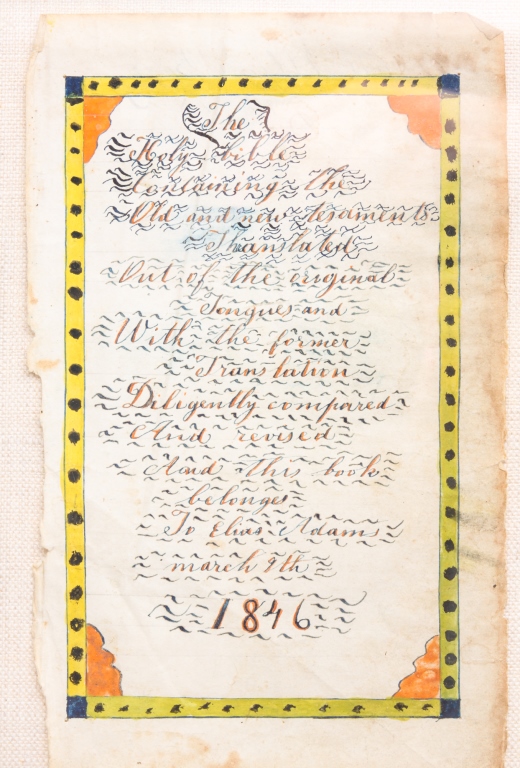 The
Holy bible
Containing the
Old and new tesaments
Thranslated
Out of the original
Tongues and
With the former
Translation
Diligently compared
And revised
And this book
belonges
To Elias Adams
march 9th
1846